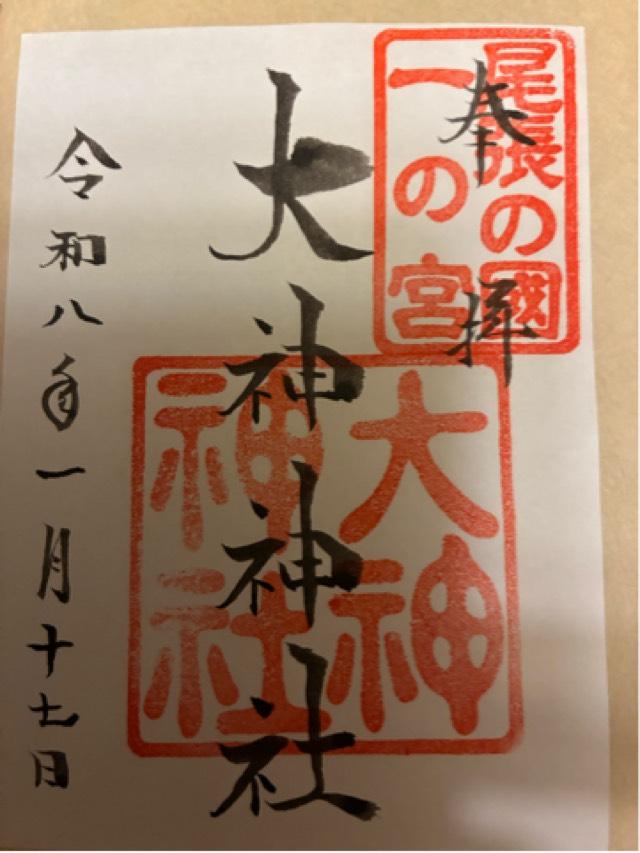 奉拝
尾張の國
一の宮
大神神社
大神
神社
令和八年一月十七日